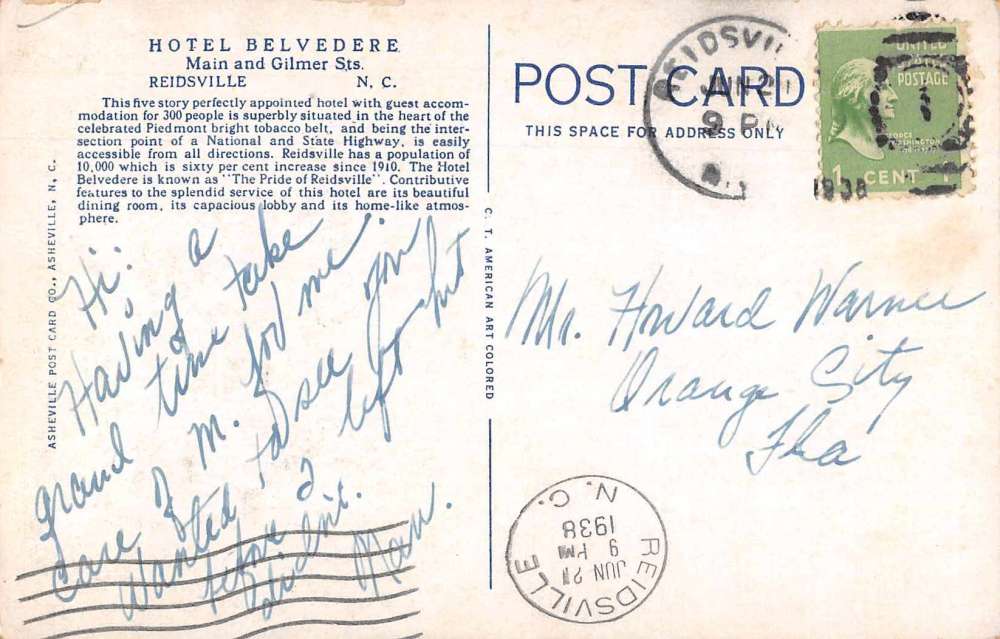 HOTEL BELVEDERE
Main and Gilmer Sts.
REIDSVILLE N. C.
This five story perfectly appointed hotel with guest accom-
modation for 300 people is superbly situated in the heart of the
celebrated Piedmont bright tobacco belt, and being the inter-
section point of a National and State Highway, is easily
accessible from all directions. Reidsville has a population of
10,000 which is sixty per cent increase since 1910. The Hotel
Belvedere is known as "The Pride of Reidsville". Contributive
features to the splendid service of this hotel are its beautiful
dining room, its capacious lobby and its home-like atmos-
phere.
Hi:
Having a
grand time take
care of M. for me
Wanted to see you
before I left but
didn't.
ASHEVILLE POST CARD CO., ASHEVILLE, N. C.
C. T. AMERICAN ART COLORED
POST CARD
THIS SPACE FOR ADDRESS ONLY
REIDSVIL
JUN 21
9 PM
N.
1938
UNITED
POSTAGE
GEORGE
WASHINGTON
1 CENT 1
Mr. Howard Warner
Orange City
Fla
REIDSVILLE
JUN 21
9 PM
1938
N. C.